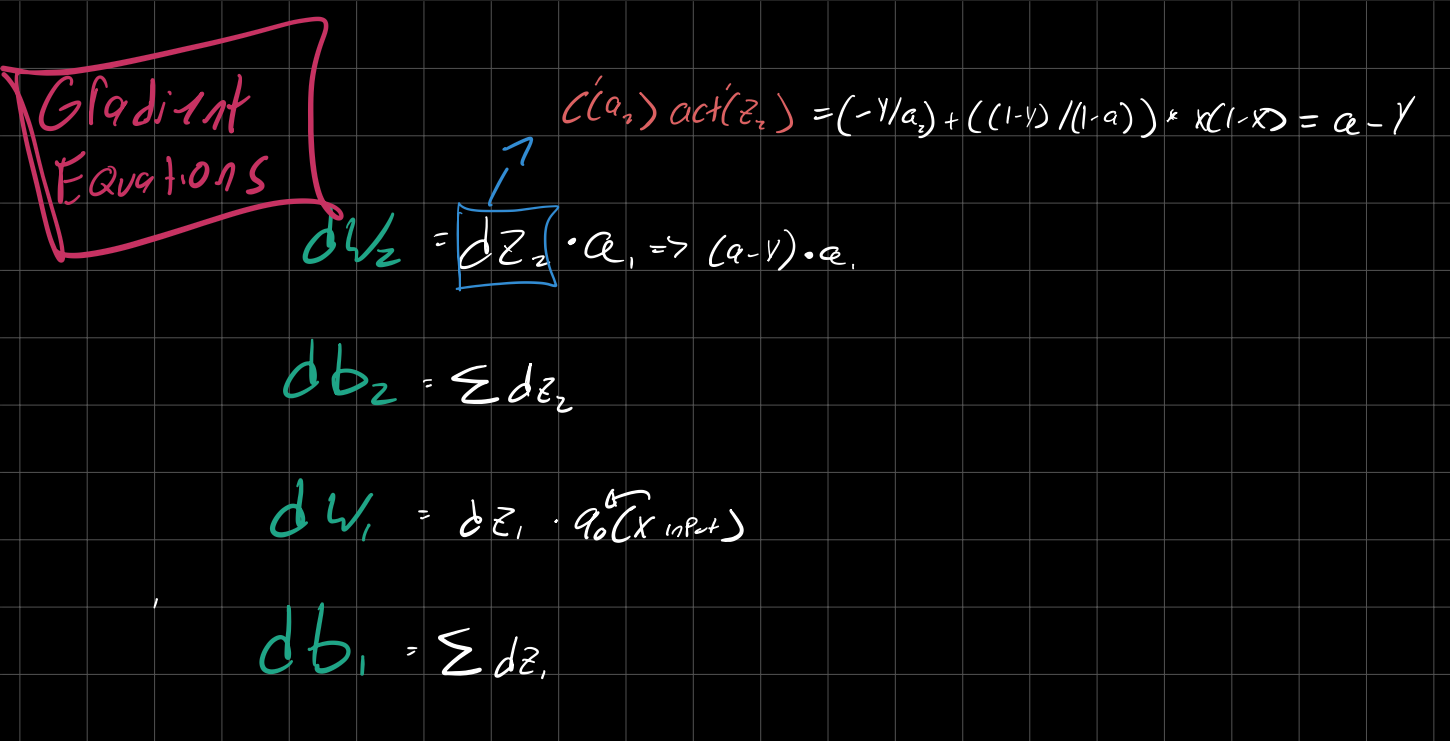 Gradient
Equations
C'(a₂) act'(z₂) = (-Y/a₂) + ((1-Y)/(1-a)) * x(1-x) = a - Y
dW₂ = dz₂ · a₁ => (a-Y) · a₁
db₂ = Σ dz₂
dW₁ = dz₁ · a₀(x input)
db₁ = Σ dz₁